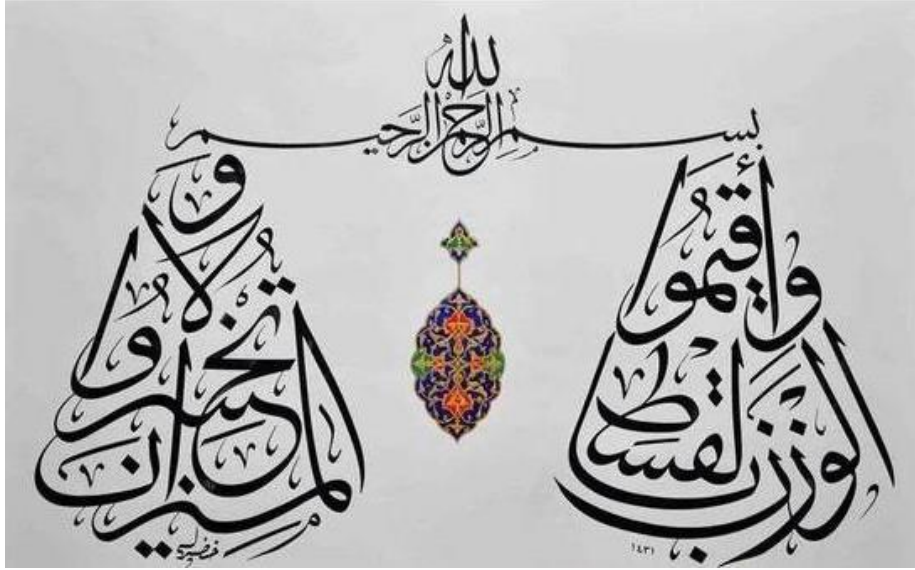 بسم الله الرحمن الرحيم
وأقيموا الوزن بالقسط
ولا تخسروا الميزان
١٤٣١